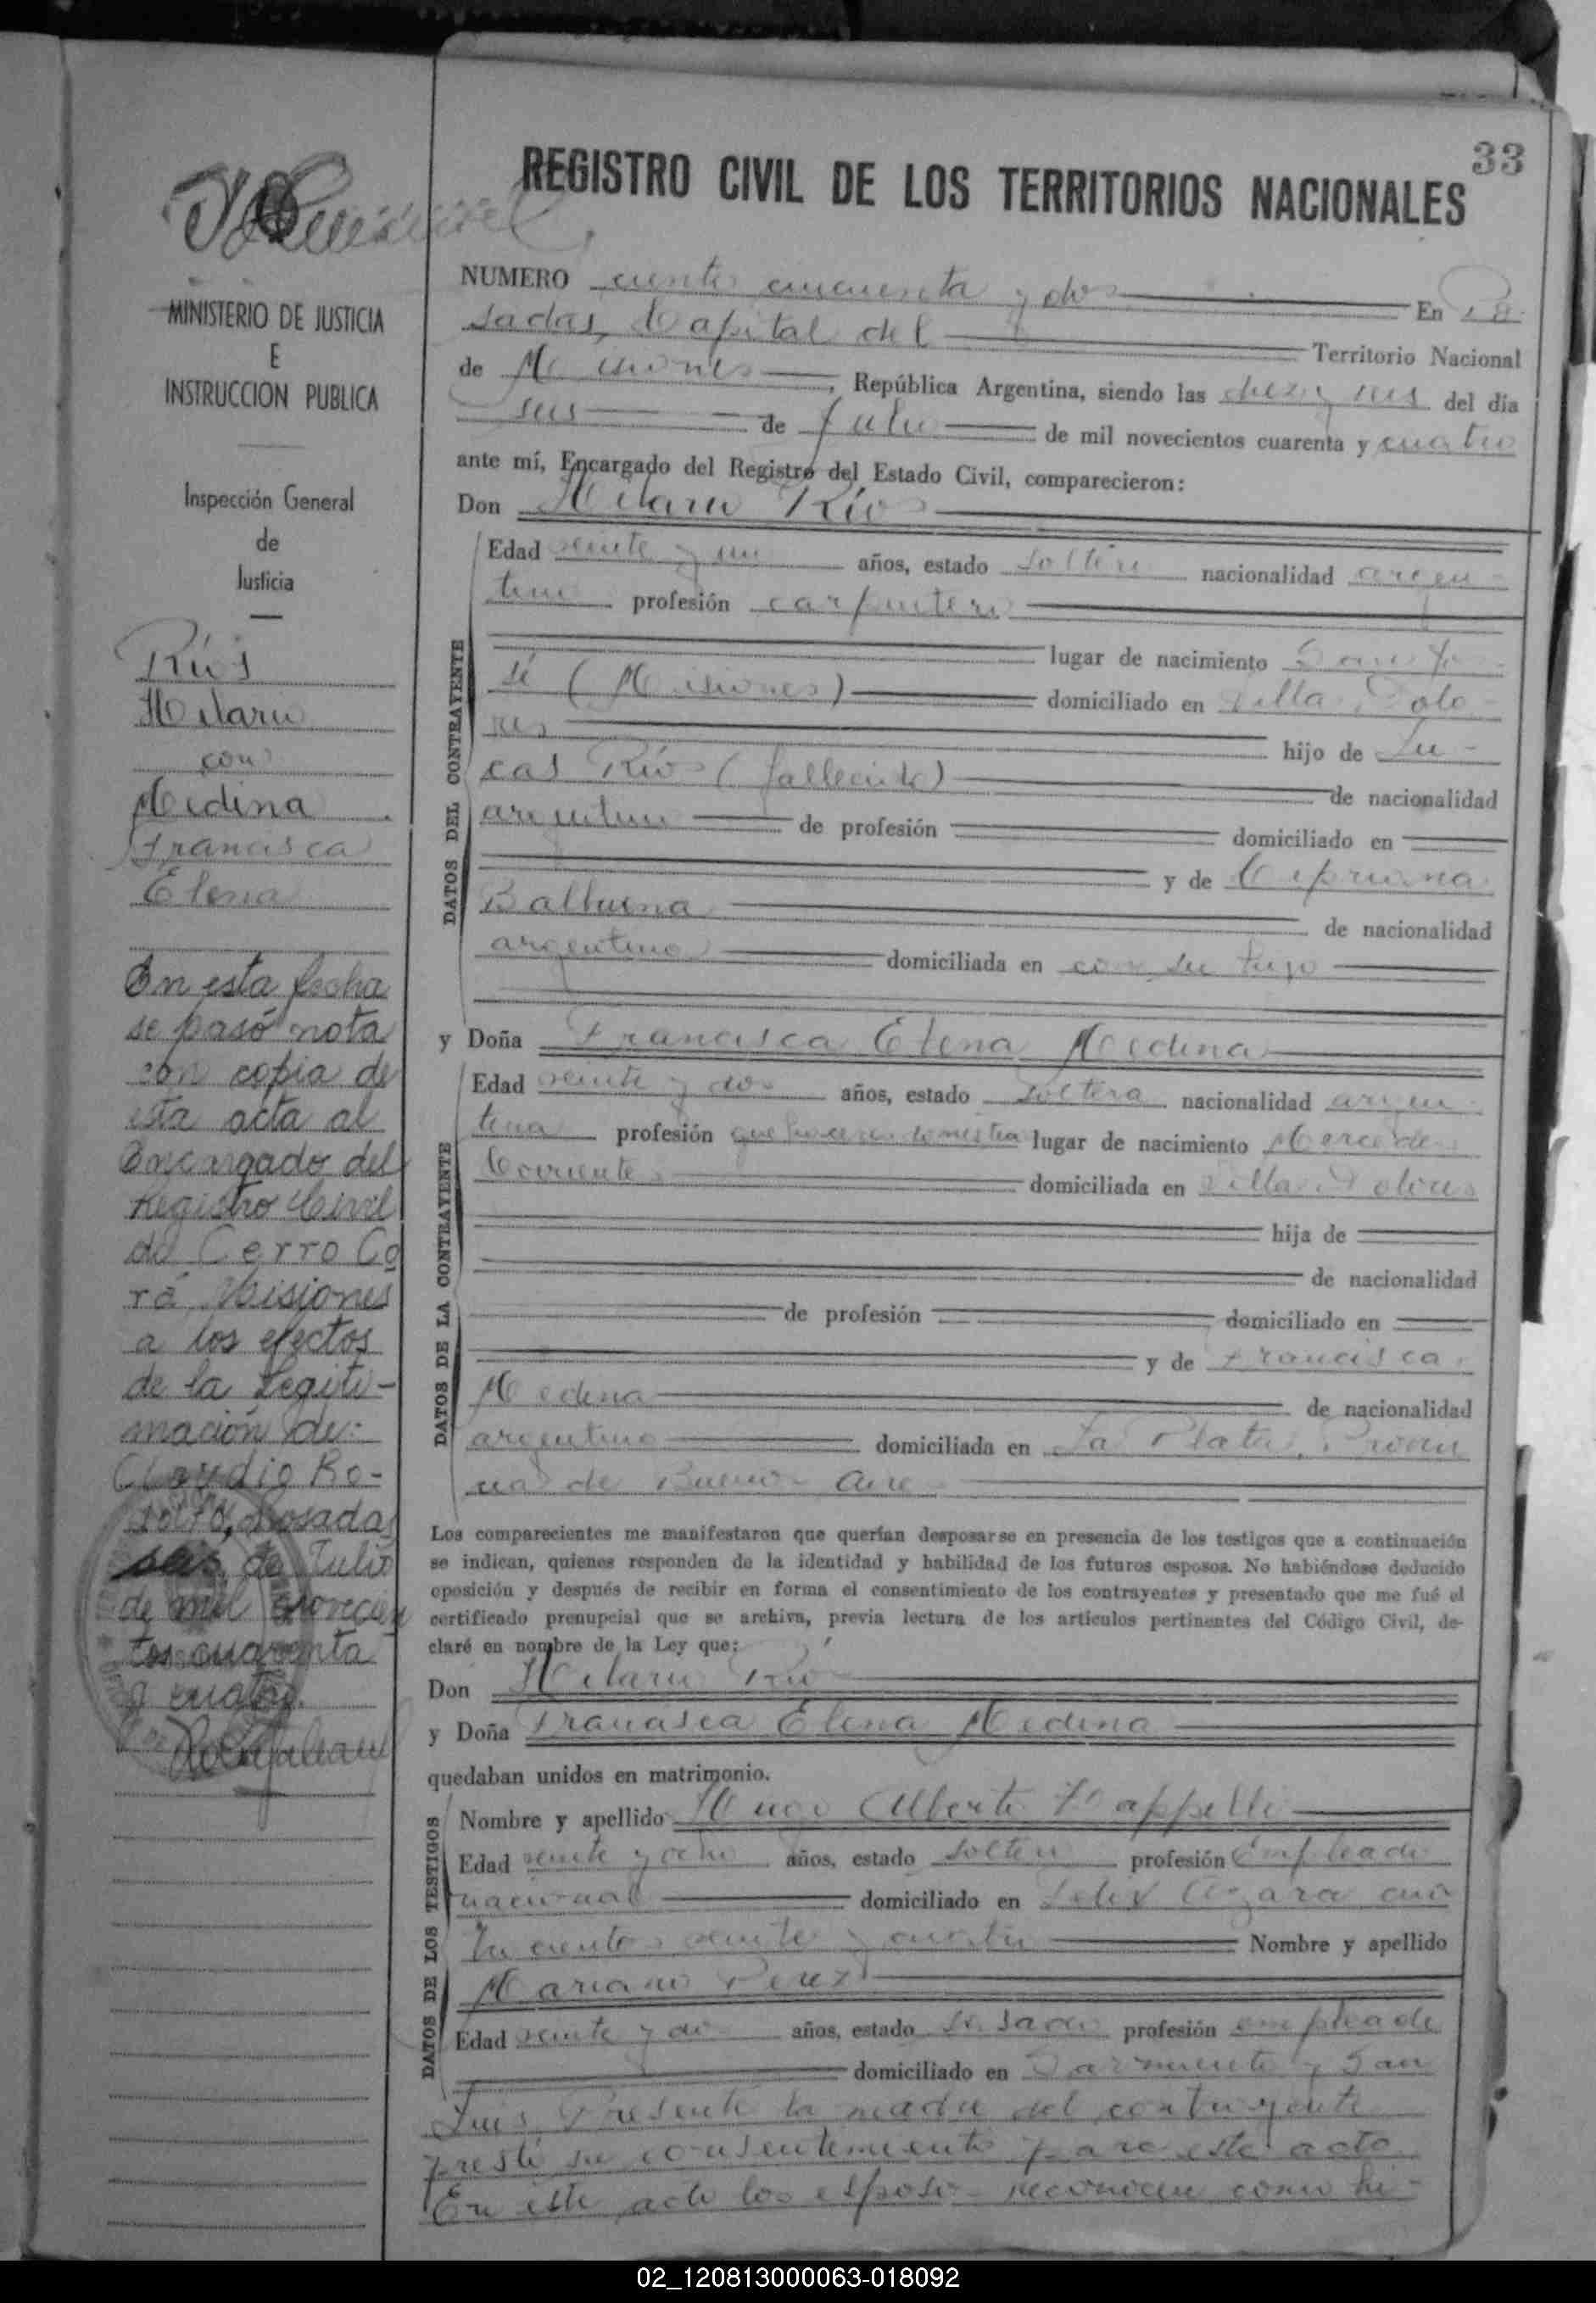 33
REGISTRO CIVIL DE LOS TERRITORIOS NACIONALES
MINISTERIO DE JUSTICIA
E
INSTRUCCION PUBLICA
Inspección General
de
Justicia
Ríos
Hilario
con
Medina
Francisca
Elena
En esta fecha
se pasó nota
con copia de
esta acta al
Encargado del
Registro Civil
de Cerro Co
rá Misiones
a los efectos
de la Legiti-
mación de:
Claudio Ro-
dolfo, Posadas
seis de Julio
de mil novecien
tos cuarenta
y cuatro.
NUMERO ciento cincuenta y dos En Po
sadas, Capital del Territorio Nacional
de Misiones, República Argentina, siendo las diez y seis del día
seis de Julio de mil novecientos cuarenta y cuatro
ante mí, Encargado del Registro del Estado Civil, comparecieron:
Don Hilario Ríos
DATOS DEL CONTRAYENTE
Edad veinte y un años, estado soltero nacionalidad argen-
tino profesión carpintero
lugar de nacimiento San Jo-
sé (Misiones) domiciliado en Villa Dolo-
res hijo de Lu-
cas Ríos (fallecido) de nacionalidad
argentino de profesión domiciliado en
y de Cipriana
Balbuena de nacionalidad
argentina domiciliada en con su hijo
y Doña Francisca Elena Medina
DATOS DE LA CONTRAYENTE
Edad veinte y dos años, estado soltera nacionalidad argen-
tina profesión quehaceres domestica lugar de nacimiento Mercedes
Corrientes domiciliada en Villa Dolores
hija de
de nacionalidad
de profesión domiciliado en
y de Francisca
Medina de nacionalidad
argentina domiciliada en La Plata, Provin
cia de Buenos Aires
Los comparecientes me manifestaron que querían desposarse en presencia de los testigos que a continuación
se indican, quienes responden de la identidad y habilidad de los futuros esposos. No habiéndose deducido
oposición y después de recibir en forma el consentimiento de los contrayentes y presentado que me fué el
certificado prenupcial que se archiva, previa lectura de los artículos pertinentes del Código Civil, de-
claré en nombre de la Ley que:
Don Hilario Ríos
y Doña Francisca Elena Medina
quedaban unidos en matrimonio.
DATOS DE LOS TESTIGOS
Nombre y apellido Hugo Alberto
Edad veinte y ocho años, estado soltero profesión Empleado
nacional domiciliado en Felix Azara cua
trocientos veinte y cuatro Nombre y apellido
Mariano Perez
Edad veinte y dos años, estado casado profesión empleado
domiciliado en Sarmiento y San
Luis. Presente la madre del contrayente
prestó su consentimiento para este acto
En este acto los esposos reconocen como hi-
02_120813000063-018092